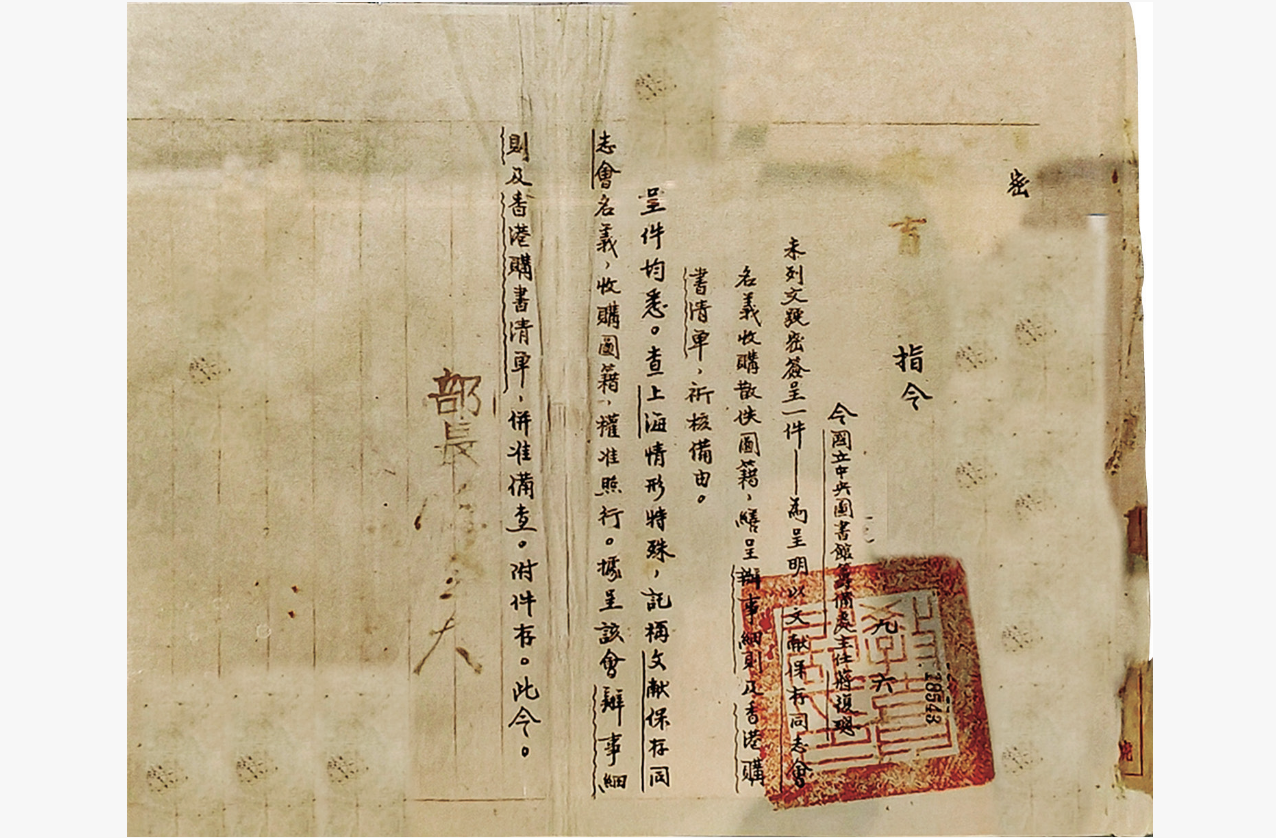 密
指令
九
六
18543
令國立中央圖書館籌備處主任蔣復璁
未列文號密簽呈一件——為呈明以文獻保存同志會
名義收購散佚圖籍,繕呈辦事細則及香港購
書清單,祈核備由。
呈件均悉。查上海情形特殊,託稱文献保存同
志會名義,收購圖籍,權准照行。據呈該會辦事細
則及香港購書清單,併准備查。附件存。此令。
部長